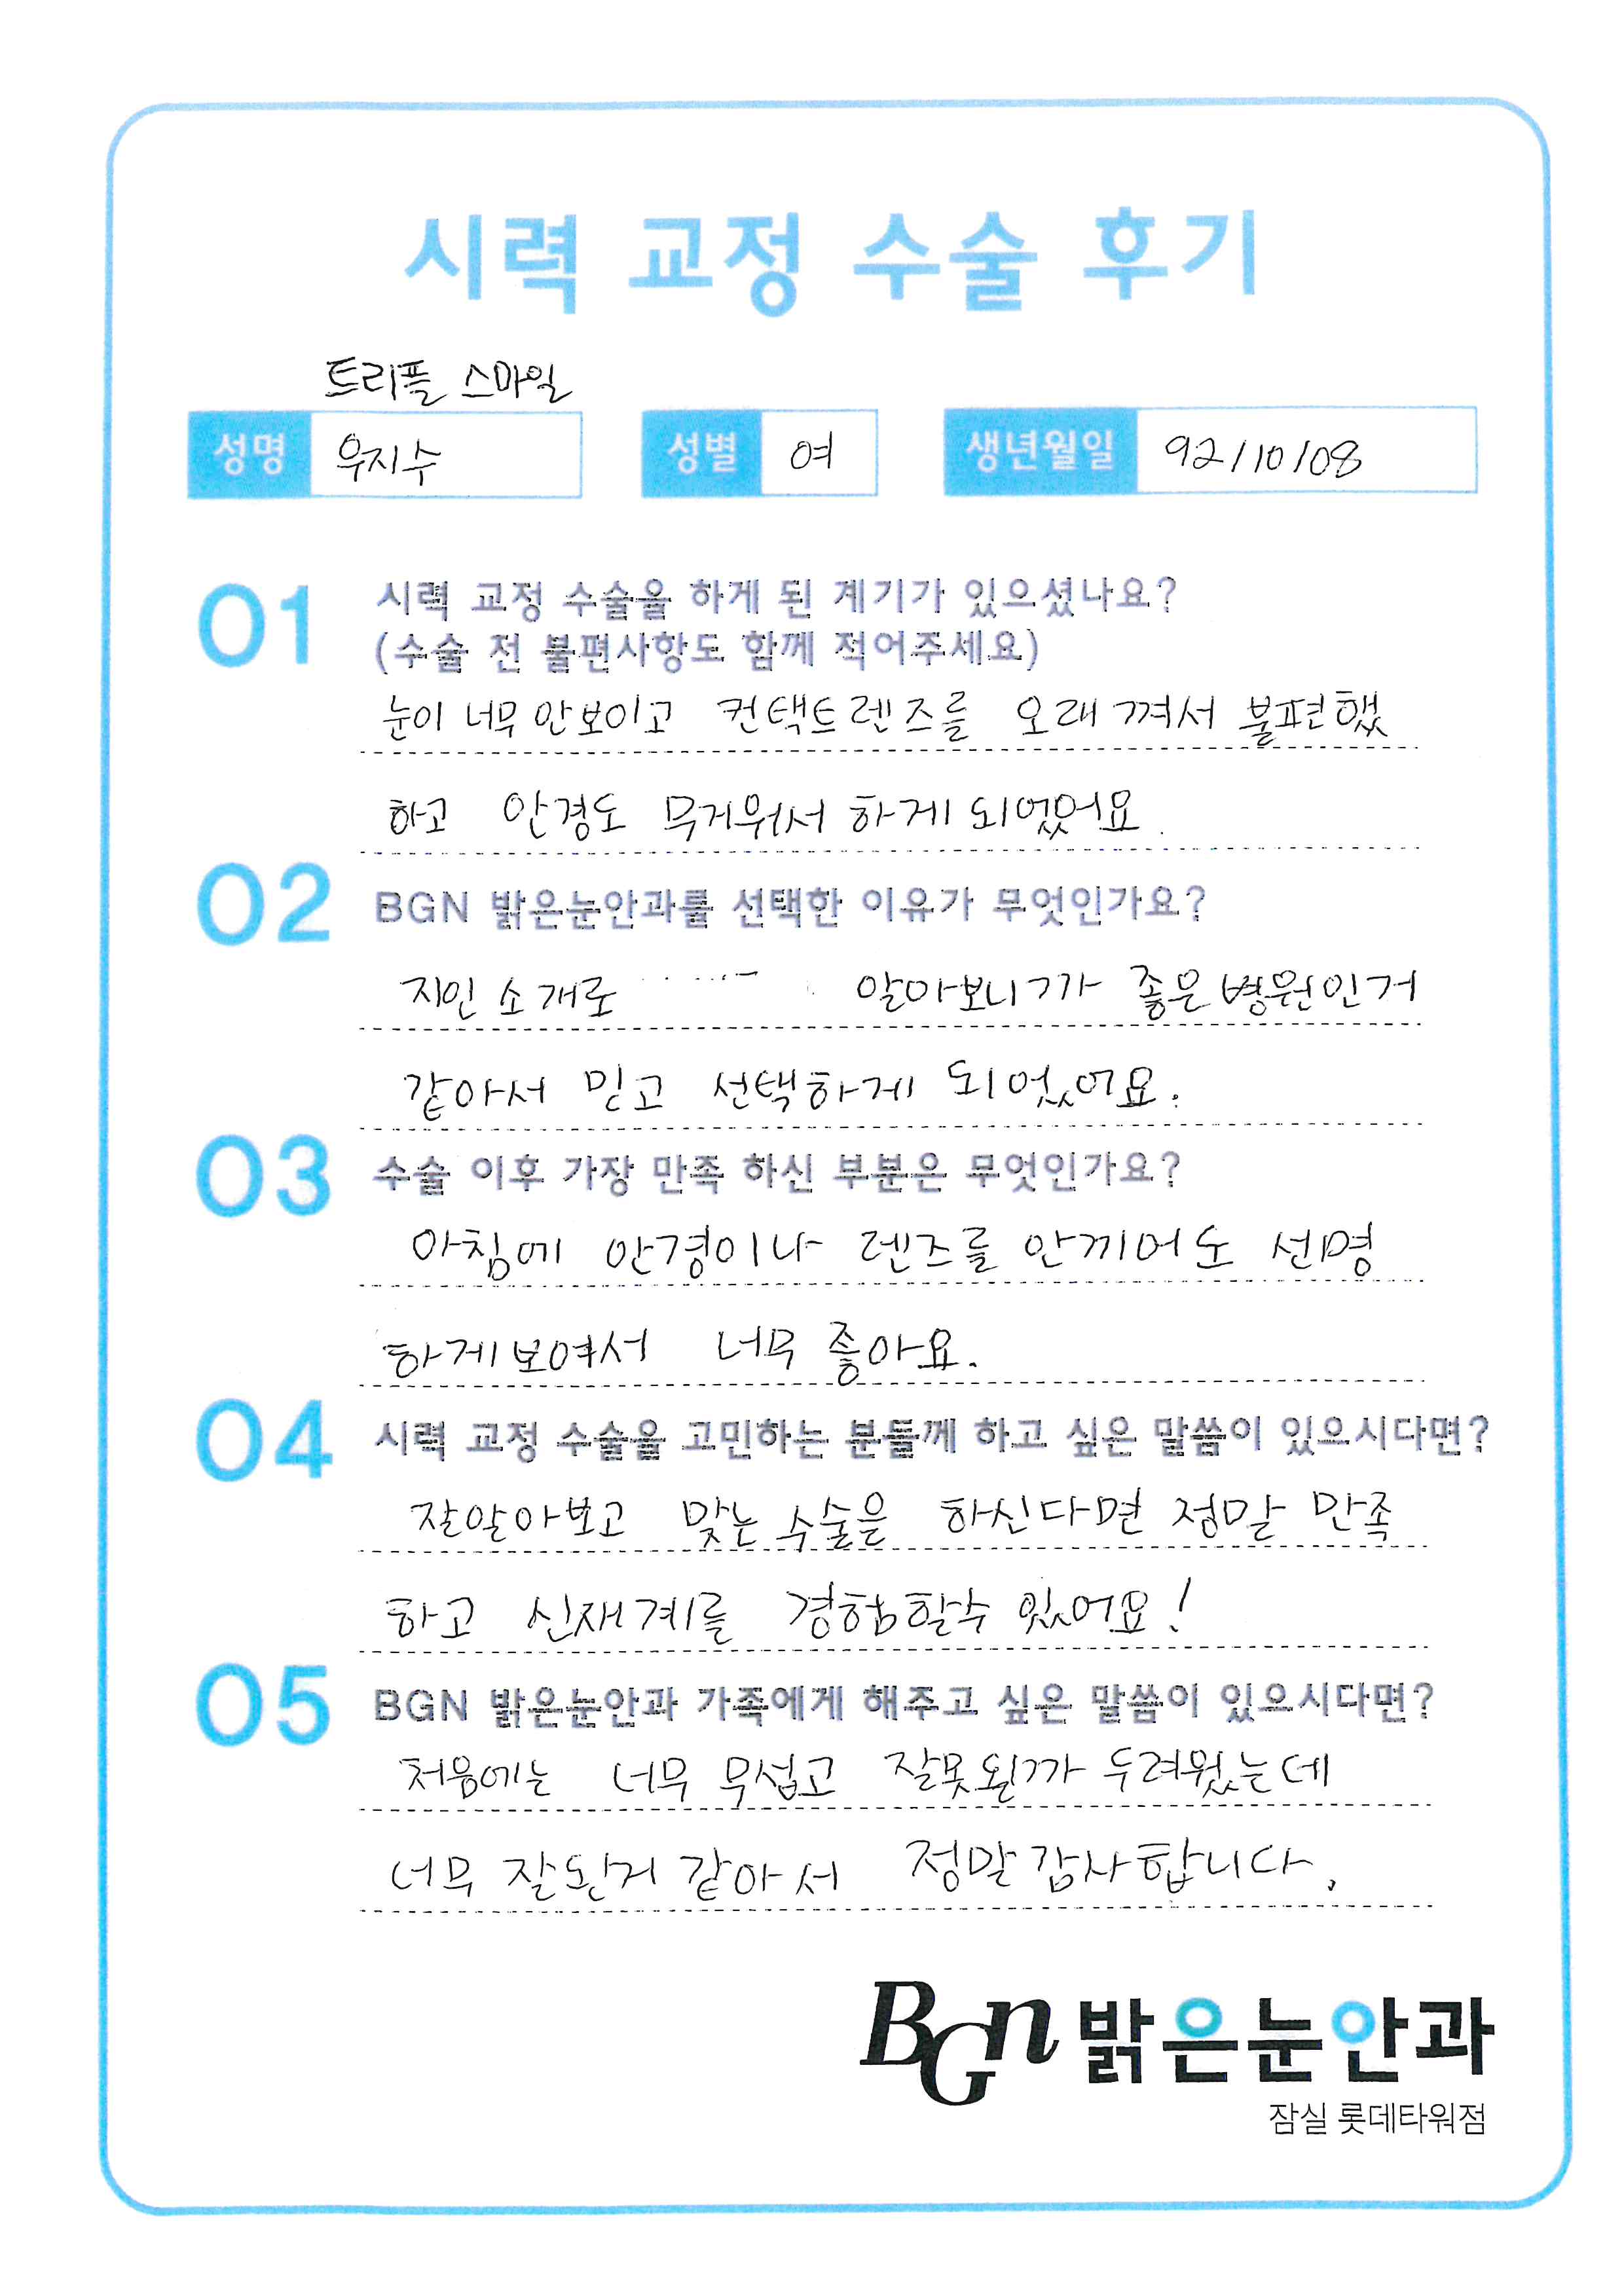 시력 교정 수술 후기
트리플 스마일
성명 우지수 성별 여 생년월일 92/10/08
01 시력 교정 수술을 하게 된 계기가 있으셨나요?
(수술 전 불편사항도 함께 적어주세요)
눈이 너무 안보이고 컨택트렌즈를 오래 껴서 불편했
하고 안경도 무거워서 하게 되었었어요.
02 BGN 밝은눈안과를 선택한 이유가 무엇인가요?
지인 소개로 알아보니까 좋은병원인거
같아서 믿고 선택하게 되었어요.
03 수술 이후 가장 만족 하신 부분은 무엇인가요?
아침에 안경이나 렌즈를 안끼어도 선명
하게보여서 너무 좋아요.
04 시력 교정 수술을 고민하는 분들께 하고 싶은 말씀이 있으시다면?
잘알아보고 맞는 수술을 하신다면 정말 만족
하고 신재계를 경험할수 있어요!
05 BGN 밝은눈안과 가족에게 해주고 싶은 말씀이 있으시다면?
처음에는 너무 무섭고 잘못될까 두려웠는데
너무 잘된거 같아서 정말감사합니다.
BGN 밝은눈안과
잠실 롯데타워점